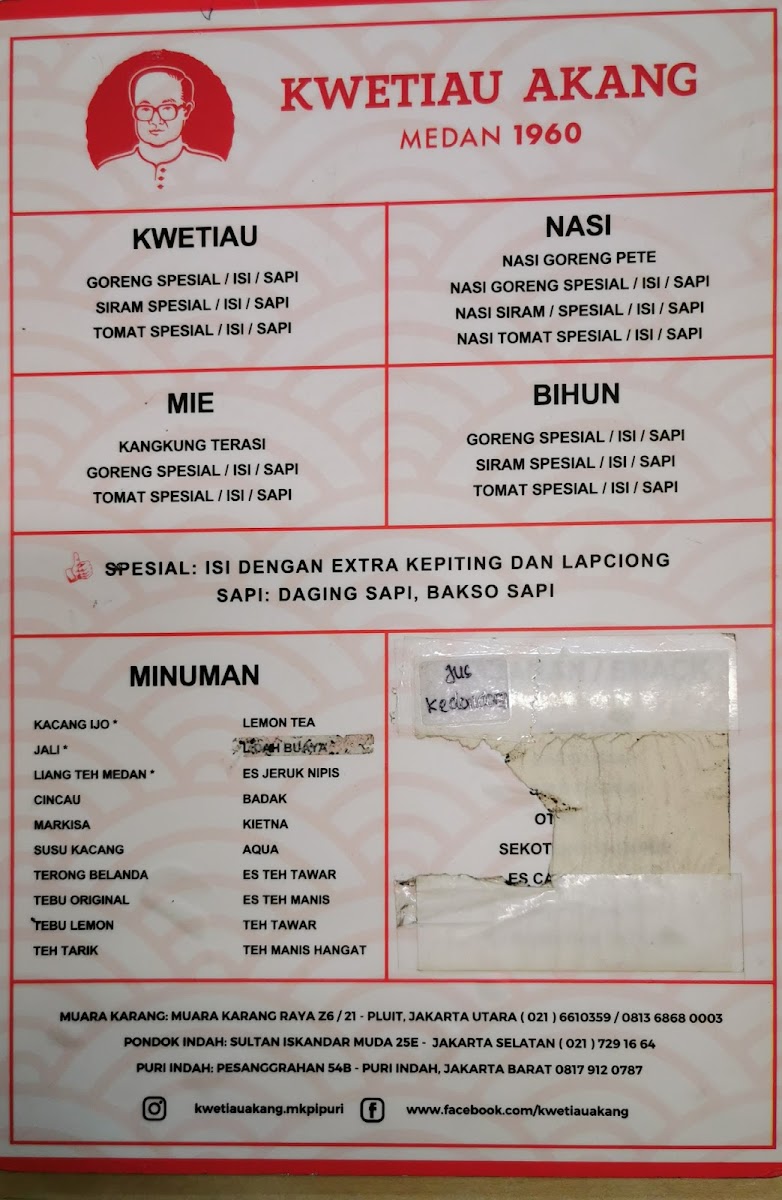 KWETIAU AKANG
MEDAN 1960
KWETIAU
GORENG SPESIAL / ISI / SAPI
SIRAM SPESIAL / ISI / SAPI
TOMAT SPESIAL / ISI / SAPI
NASI
NASI GORENG PETE
NASI GORENG SPESIAL / ISI / SAPI
NASI SIRAM / SPESIAL / ISI / SAPI
NASI TOMAT SPESIAL / ISI / SAPI
MIE
KANGKUNG TERASI
GORENG SPESIAL / ISI / SAPI
TOMAT SPESIAL / ISI / SAPI
BIHUN
GORENG SPESIAL / ISI / SAPI
SIRAM SPESIAL / ISI / SAPI
TOMAT SPESIAL / ISI / SAPI
SPESIAL: ISI DENGAN EXTRA KEPITING DAN LAPCIONG
SAPI: DAGING SAPI, BAKSO SAPI
MINUMAN
KACANG IJO *
JALI *
LIANG TEH MEDAN *
CINCAU
MARKISA
SUSU KACANG
TERONG BELANDA
TEBU ORIGINAL
TEBU LEMON
TEH TARIK
LEMON TEA
LIDAH BUAYA
ES JERUK NIPIS
BADAK
KIETNA
AQUA
ES TEH TAWAR
ES TEH MANIS
TEH TAWAR
TEH MANIS HANGAT
Jus
Kedondong
OT
SEKOT
ES CA
MUARA KARANG: MUARA KARANG RAYA Z6 / 21 - PLUIT, JAKARTA UTARA ( 021 ) 6610359 / 0813 6868 0003
PONDOK INDAH: SULTAN ISKANDAR MUDA 25E - JAKARTA SELATAN ( 021 ) 729 16 64
PURI INDAH: PESANGGRAHAN 54B - PURI INDAH, JAKARTA BARAT 0817 912 0787
kwetiauakang.mkpipuri
www.facebook.com/kwetiauakang